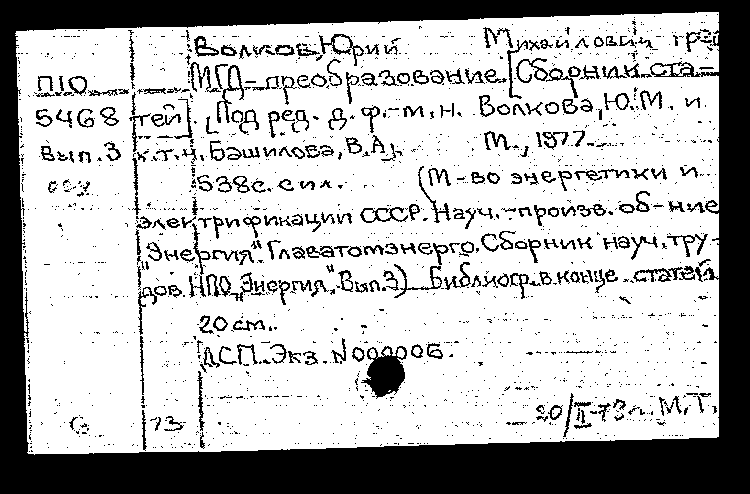 Волков, Юрий Михайлович
П10 МГД-преобразование [Сборник ста-
5468 тей]. [Под ред. д. ф.-м. н. Волкова, Ю.М. и
Вып.3 к.т.н. Башилова, В.А]. М., 1977.
538с. с ил. (М-во энергетики и
электрификации СССР. Науч.-произв. об-ние
"Энергия". Главатомэнерго. Сборник науч. тру-
дов НПО „Энергия". Вып.3) Библиогр. в конце статей
20 см.
ДСП. Экз. N000006.
73 20/II-73г. М.Т.